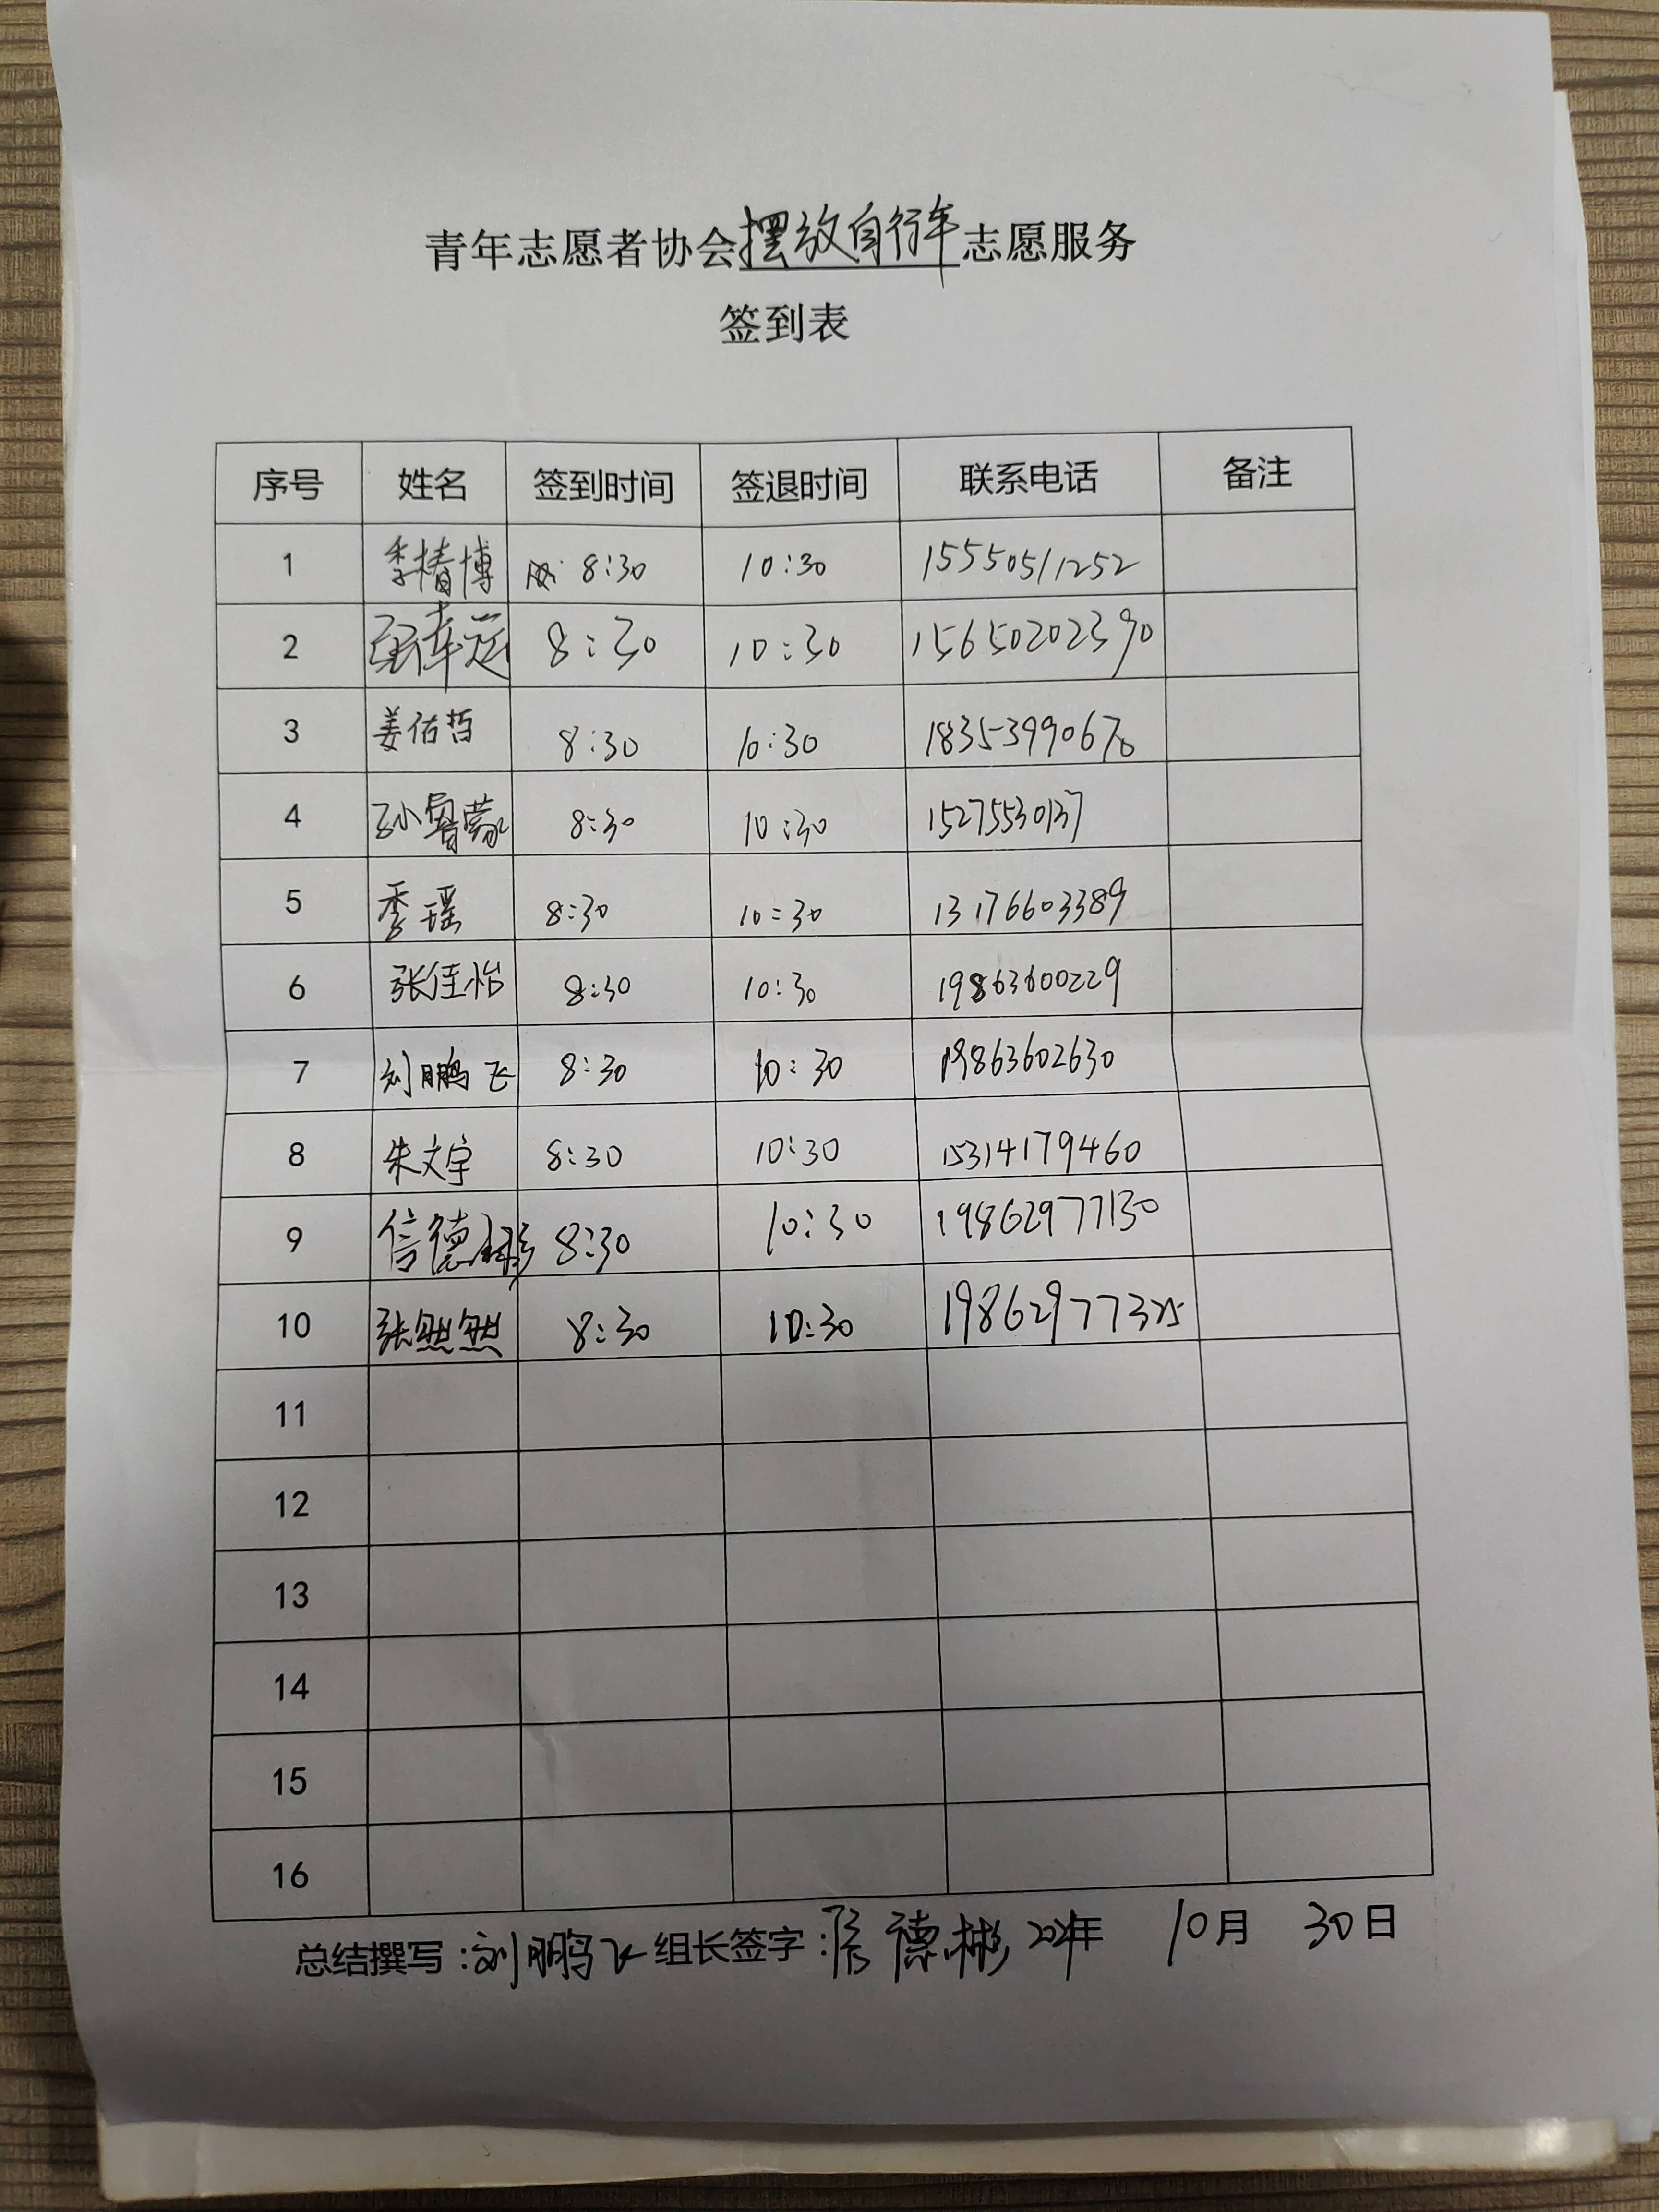 青年志愿者协会摆放自行车志愿服务
签到表
序号 姓名 签到时间 签退时间 联系电话 备注
1 李椿博 8:30 10:30 15550511252
2 8:30 10:30 15650202390
3 姜佑哲 8:30 10:30 18353990670
4 8:30 10:30 15275530137
5 季瑶 8:30 10:30 13176603389
6 张佳怡 8:30 10:30 19863600229
7 刘鹏飞 8:30 10:30 19863602630
8 朱文宇 8:30 10:30 15314179460
9 信德彬 8:30 10:30 19862977130
10 张然然 8:30 10:30 19862977325
11
12
13
14
15
16
总结撰写:刘鹏飞 组长签字:信德彬 年 10月 30日